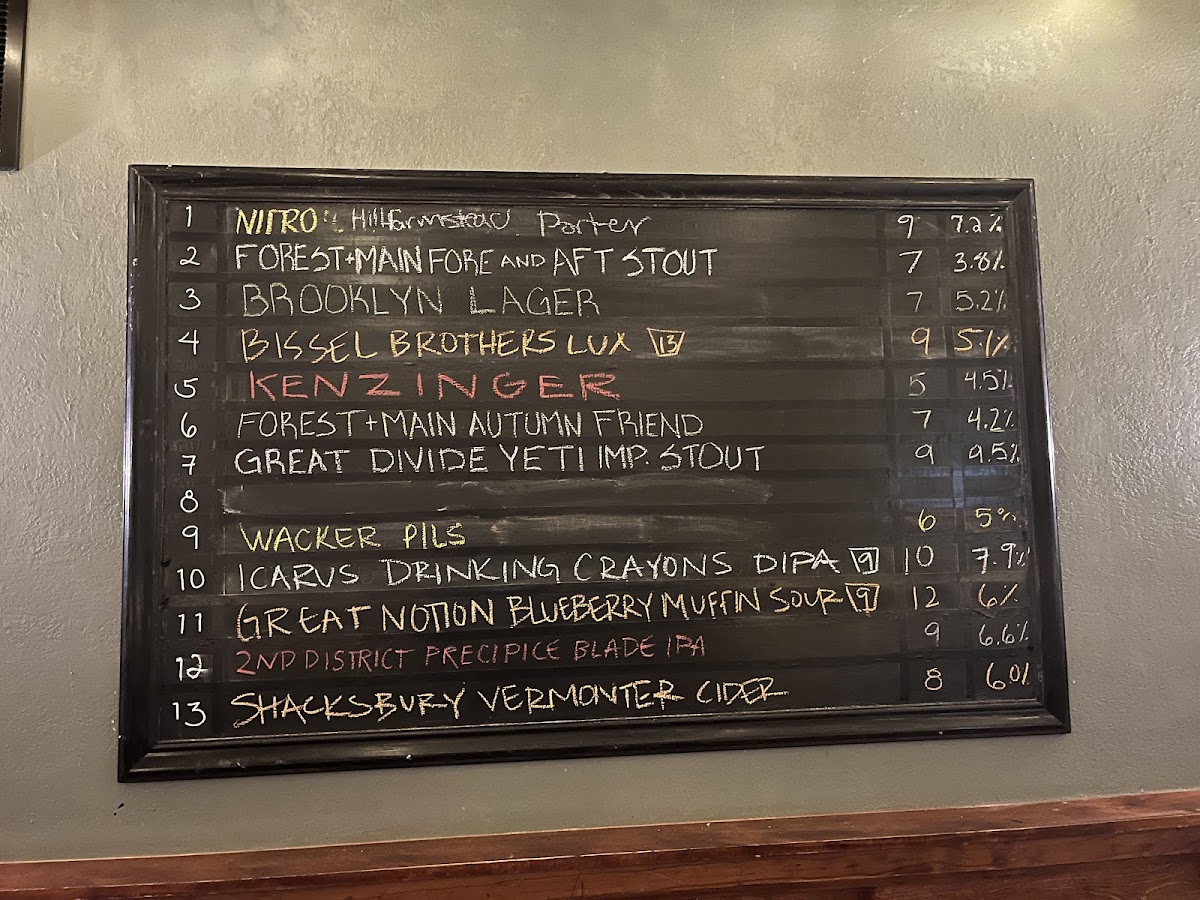 1 NITRO: Hill Farmstead Porter 9 7.2%
2 FOREST+MAIN FORE AND AFT STOUT 7 3.8%
3 BROOKLYN LAGER 7 5.2%
4 BISSEL BROTHERS LUX 13 9 5.1%
5 KENZINGER 5 4.5%
6 FOREST+MAIN AUTUMN FRIEND 7 4.2%
7 GREAT DIVIDE YETI IMP. STOUT 9 9.5%
8
9 WACKER PILS 6 5%
10 ICARUS DRINKING CRAYONS DIPA 9 10 7.9%
11 GREAT NOTION BLUEBERRY MUFFIN SOUR 9 12 6%
12 2ND DISTRICT PRECIPICE BLADE IPA 9 6.6%
13 SHACKSBURY VERMONTER CIDER 8 6.0%